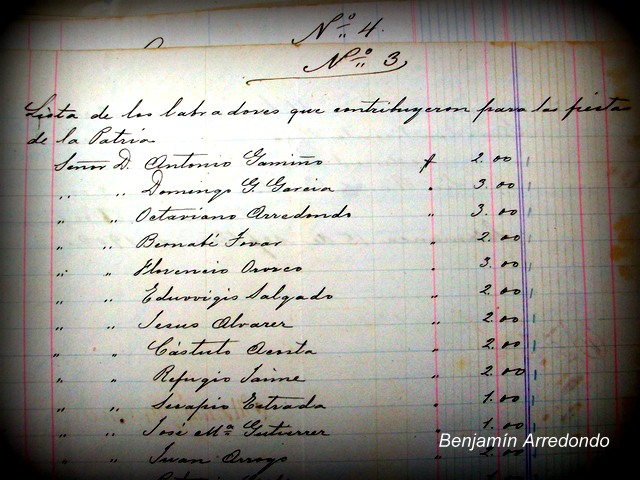 Nº 4.
Nº 3
Lista de los labradores que contribuyeron para la fiesta
de la Patria
Señor D. Antonio Gamiño $ 2.00
" " Domingo G. Garcia " 3.00
" " Octaviano Arredondo " 3.00
" " Bernabé Tovar " 2.00
" " Florencio Orozco " 3.00
" " Eduvvigis Salgado " 2.00
" " Jesus Alvarez " 2.00
" " Cástulo Acosta " 2.00
" " Refugio Jaime " 2.00
" " Serapio Estrada " 1.00
" " José Mª Gutierrez " 1.00
" " Juan Arroyo " 2.00
Benjamín Arredondo